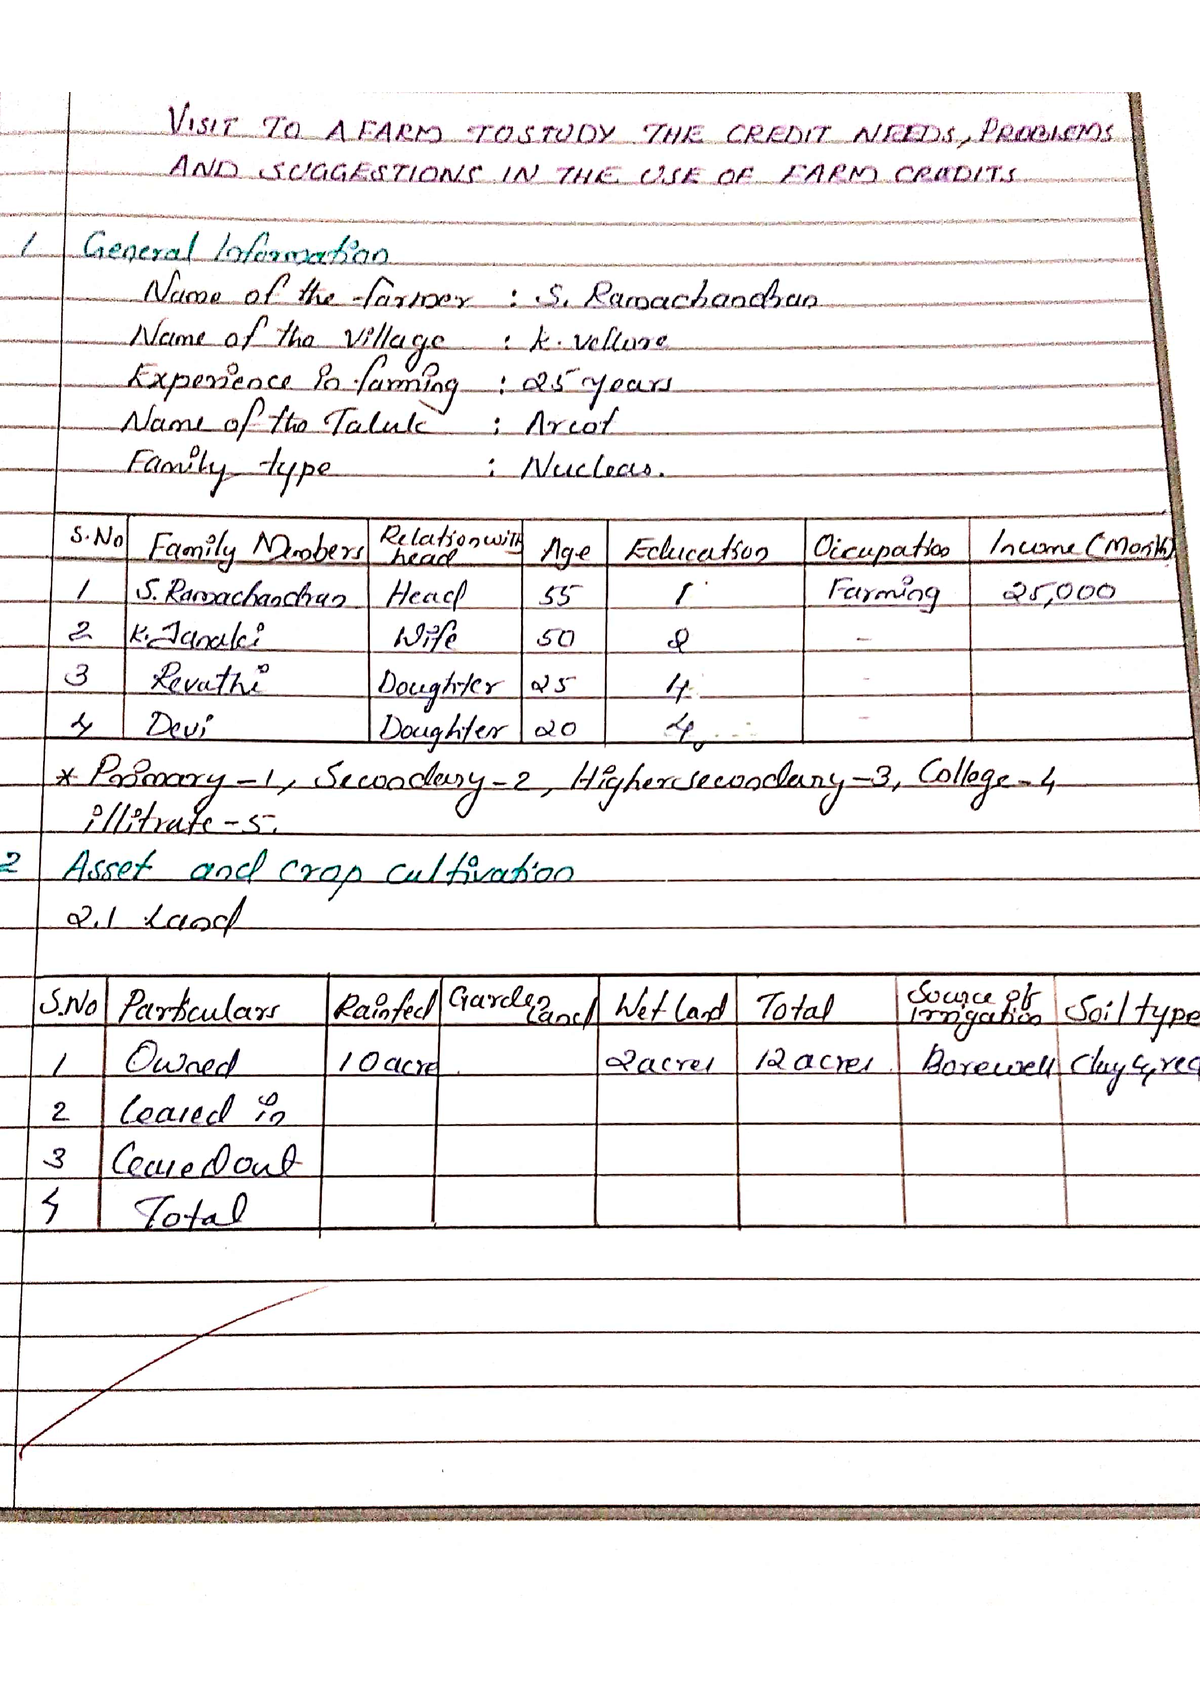 VISIT TO A FARM TO STUDY THE CREDIT NEEDS, PROBLEMS
AND SUGGESTIONS IN THE USE OF FARM CREDITS
1 General Information
Name of the farmer : S. Ramachandran
Name of the village : K. vellore
Experience in farming : 25 years
Name of the Taluk : Arcot
Family type : Nuclear.
S.No Family Members Relation with head Age Education Occupation Income (Month)
1 S. Ramachandran Head 55 1 Farming 25,000
2 K. Janaki Wife 50 2 -
3 Revathi Doughter 25 4 -
4 Devi Doughter 20 4 -
* Primary - 1, Secondary - 2, Higher secondary - 3, College - 4
illitrate - 5.
2 Asset and crop cultivation
2.1 Land
S.No Particulars Rainfed Garden land Wet land Total Source of irrigation Soil type
1 Owned 10 acre 2 acres 12 acres Borewell Clay & red
2 Leased in
3 Leased out
4 Total